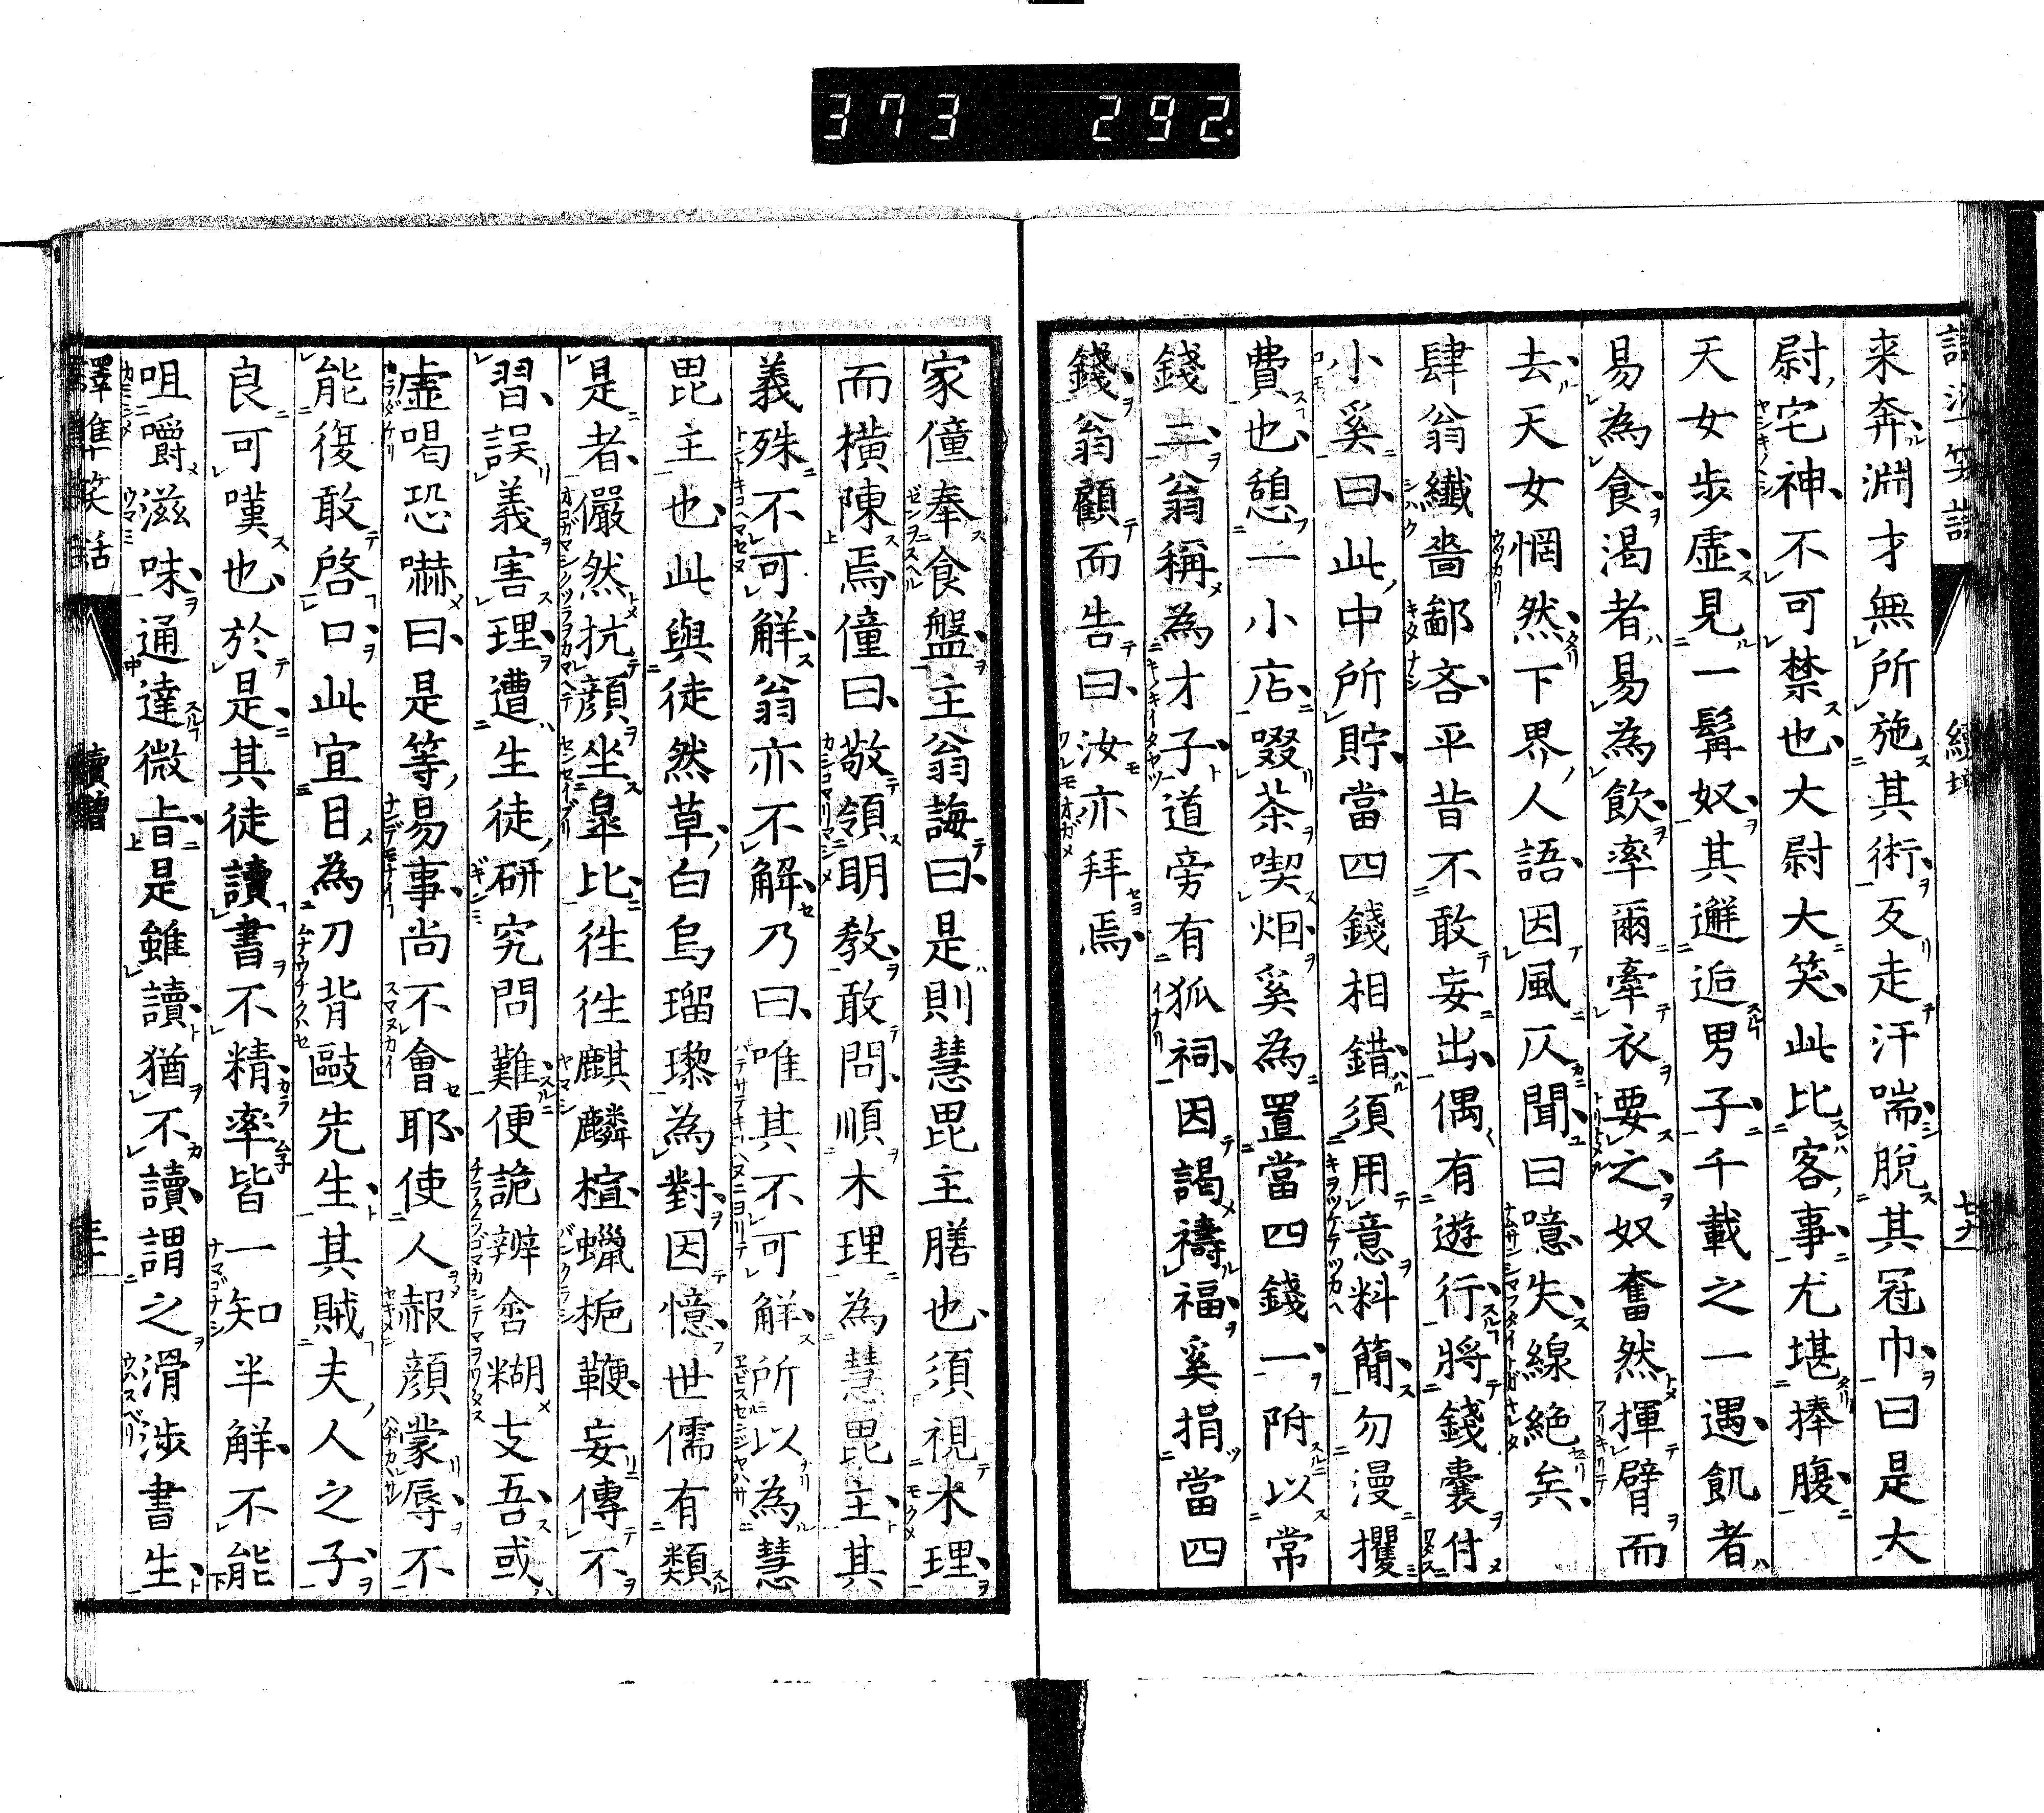 373 292.
来奔淵才無所施其術反走汗喘脫其冠巾曰是大
尉宅神不可禁也大尉大笑此比客事尤堪捧腹
天女步虛見一髯奴其邂逅男子千載之一遇飢者
易為食渴者易為飲率爾牽衣要之奴奮然揮臂而
去天女惘然下界人語因風仄聞曰噫失線絕矣
肆翁纖嗇鄙吝平昔不敢妄出偶有遊行將錢囊付
小奚曰此中所貯當四錢相錯須用意料簡勿漫攫
費也憩一小店啜茶喫烟奚為置當四錢一附以常
錢二翁稱為才子道旁有狐祠因謁禱福奚捐當四
錢翁顧而告曰汝亦拜焉
家僮奉食盤主翁誨曰是則慧毘主膳也須視木理
而橫陳焉僮曰敬領明教敢問順木理為慧毘主其
義殊不可解翁亦不解乃曰唯其不可解所以為慧
毘主也此與徒然草白烏瑠璨為對因憶世儒有類
是者儼然抗顏坐皐比徃徃麒麟楦蠟梔鞭妄傳不
習誤義害理遭生徒研究問難便詭辨含糊支吾或
虛喝恐嚇曰是等易事尚不會耶使人赧顏蒙辱不
能復敢啓口此宜目為刀背毆先生其賊夫人之子
良可嘆也於是其徒讀書不精率皆一知半解不能
咀嚼滋味通達微旨是雖讀猶不讀謂之滑涉書生
譯準笑話